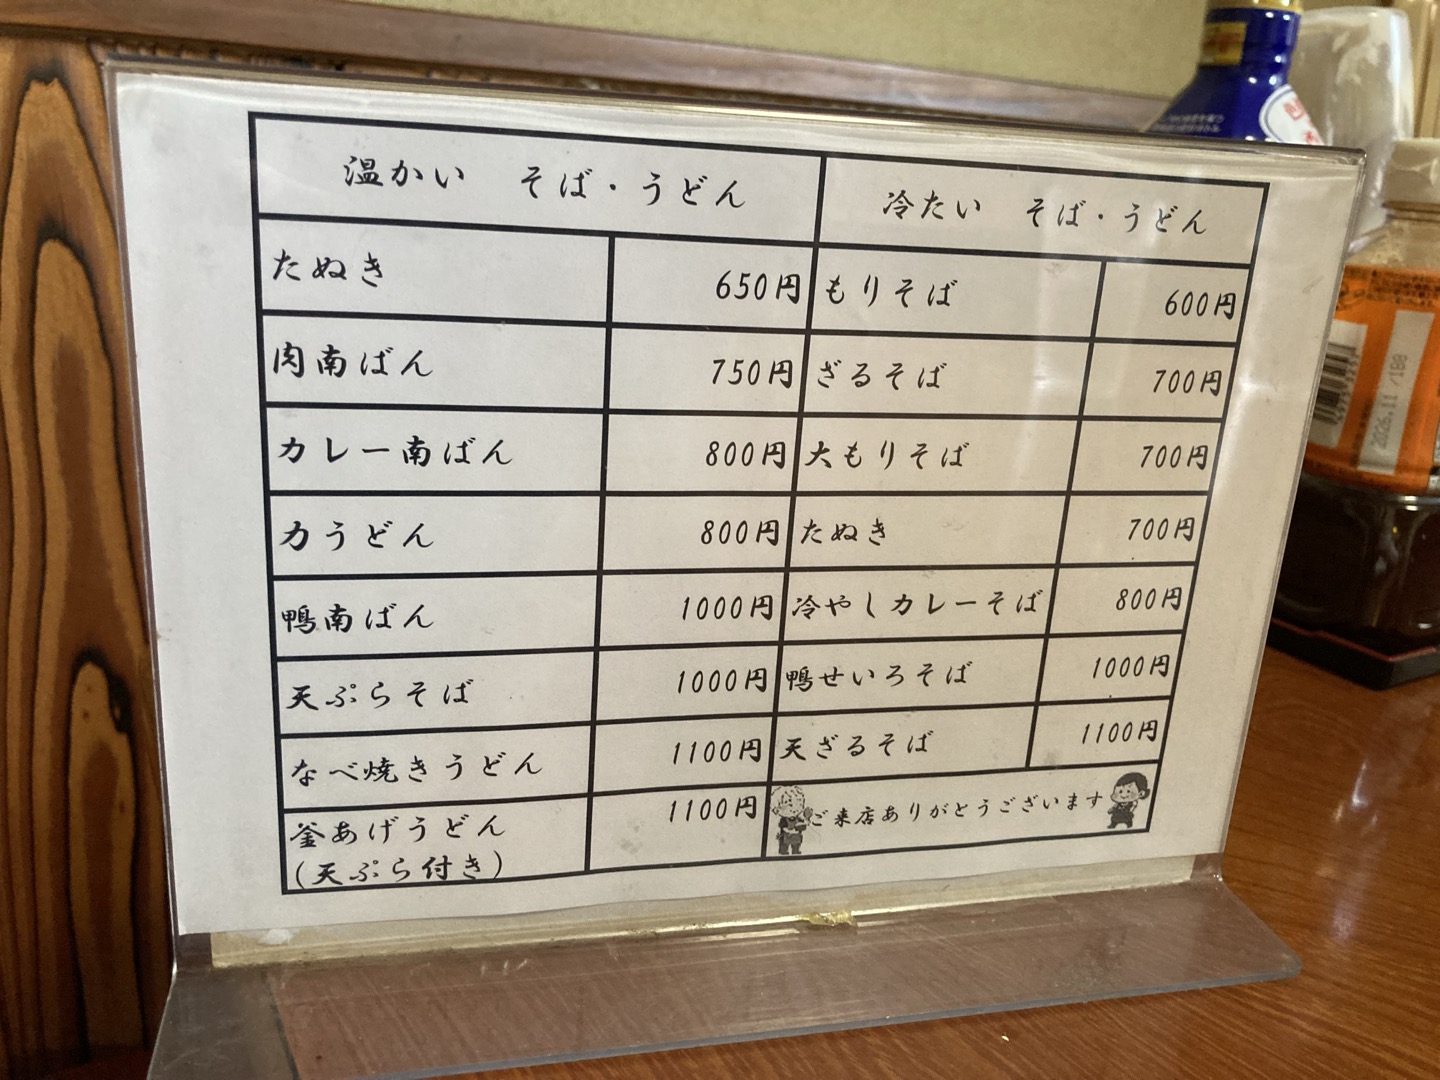 温かい そば・うどん
たぬき 650円
肉南ばん 750円
カレー南ばん 800円
力うどん 800円
鴨南ばん 1000円
天ぷらそば 1000円
なべ焼きうどん 1100円
釜あげうどん 1100円
(天ぷら付き)
冷たい そば・うどん
もりそば 600円
ざるそば 700円
大もりそば 700円
たぬき 700円
冷やしカレーそば 800円
鴨せいろそば 1000円
天ざるそば 1100円
ご来店ありがとうございます
2026.11